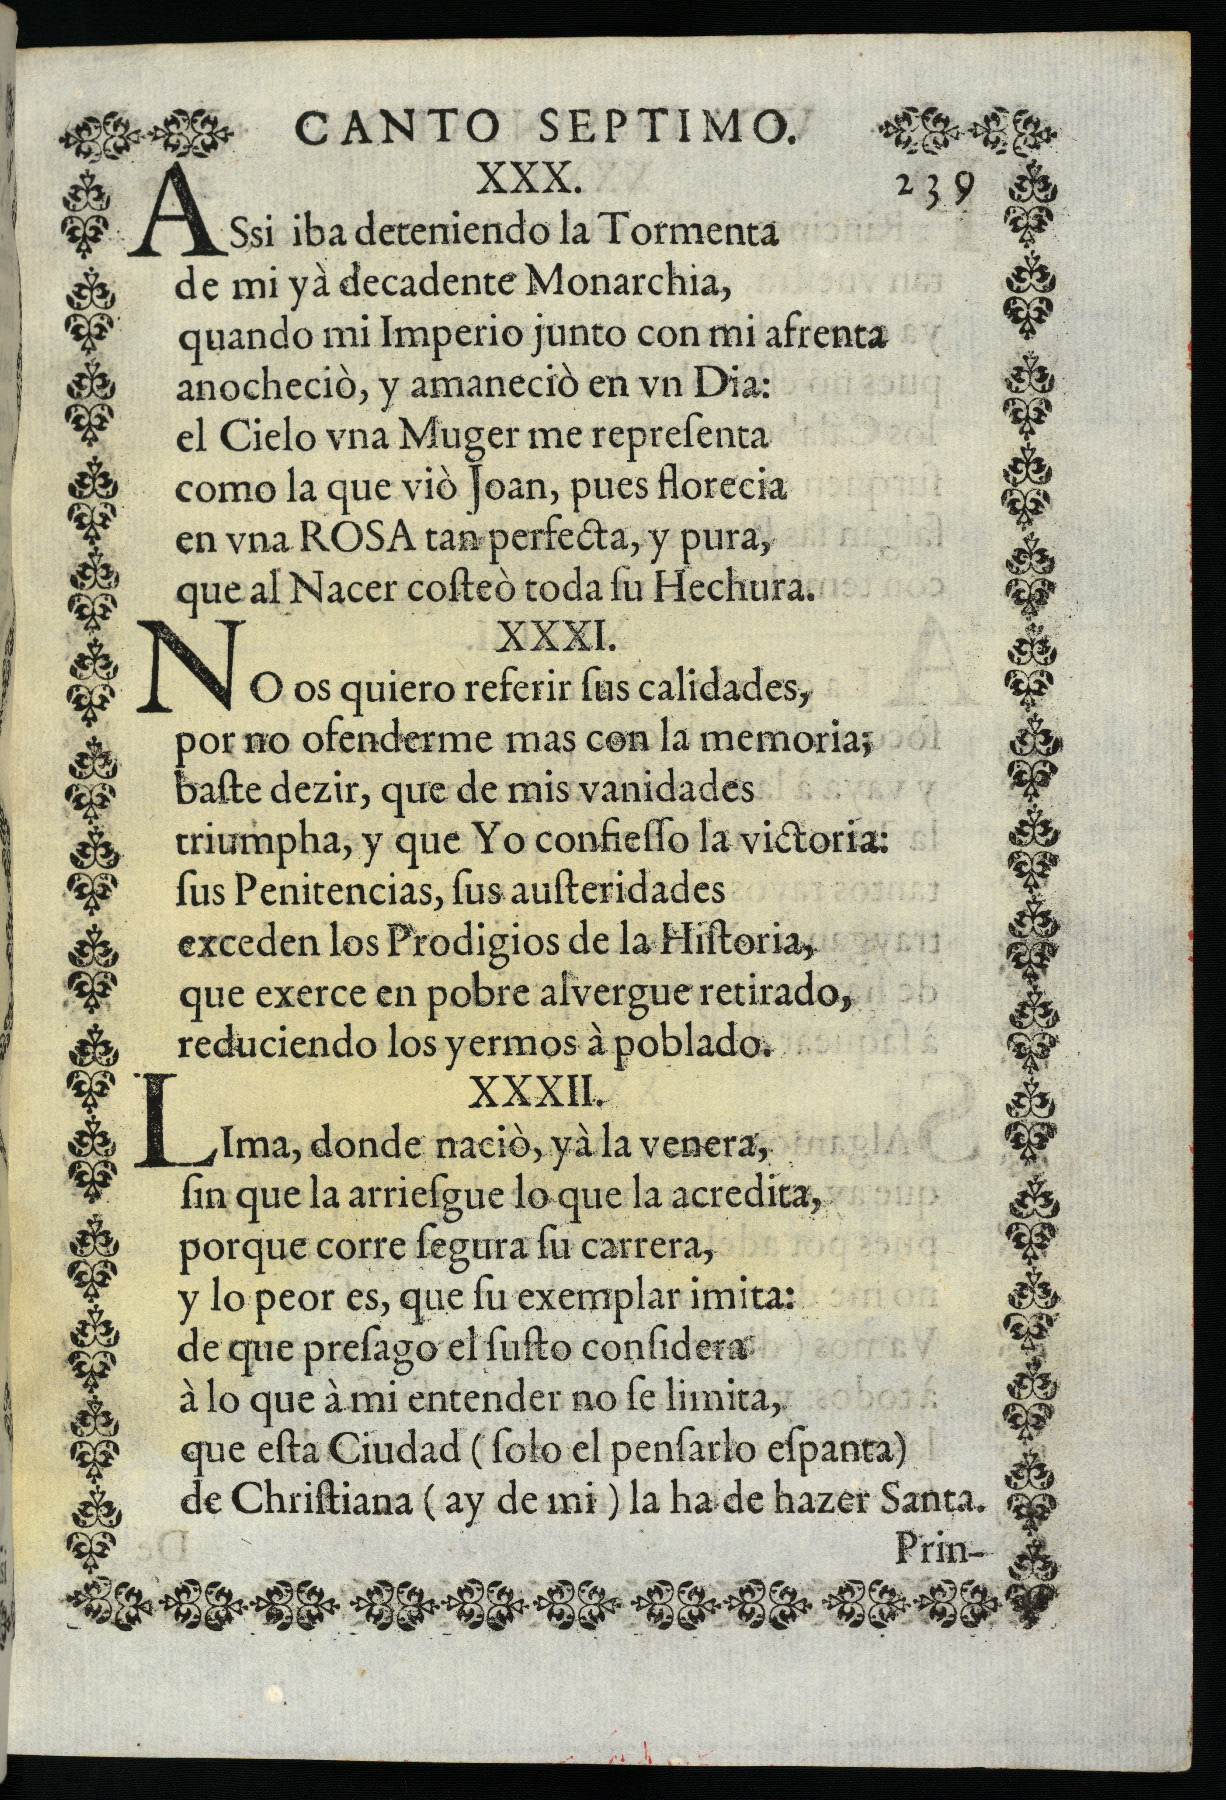 CANTO SEPTIMO.
XXX.
239
ASsi iba deteniendo la Tormenta
de mi yà decadente Monarchia,
quando mi Imperio junto con mi afrenta
anocheciò, y amaneciò en vn Dia:
el Cielo vna Muger me repreſenta
como la que viò Joan, pues florecia
en vna ROSA tan perfecta, y pura,
que al Nacer coſteò toda ſu Hechura.
XXXI.
NO os quiero referir ſus calidades,
por no ofenderme mas con la memoria;
baſte dezir, que de mis vanidades
triumpha, y que Yo confieſſo la victoria:
ſus Penitencias, ſus auſteridades
exceden los Prodigios de la Hiſtoria,
que exerce en pobre alvergue retirado,
reduciendo los yermos à poblado.
XXXII.
LIma, donde naciò, yà la venera,
ſin que la arrieſgue lo que la acredita,
porque corre ſegura ſu carrera,
y lo peor es, que ſu exemplar imita:
de que preſago el ſuſto conſidera
à lo que à mi entender no ſe limita,
que eſta Ciudad (ſolo el penſarlo eſpanta)
de Chriſtiana (ay de mi) la ha de hazer Santa.
Prin-